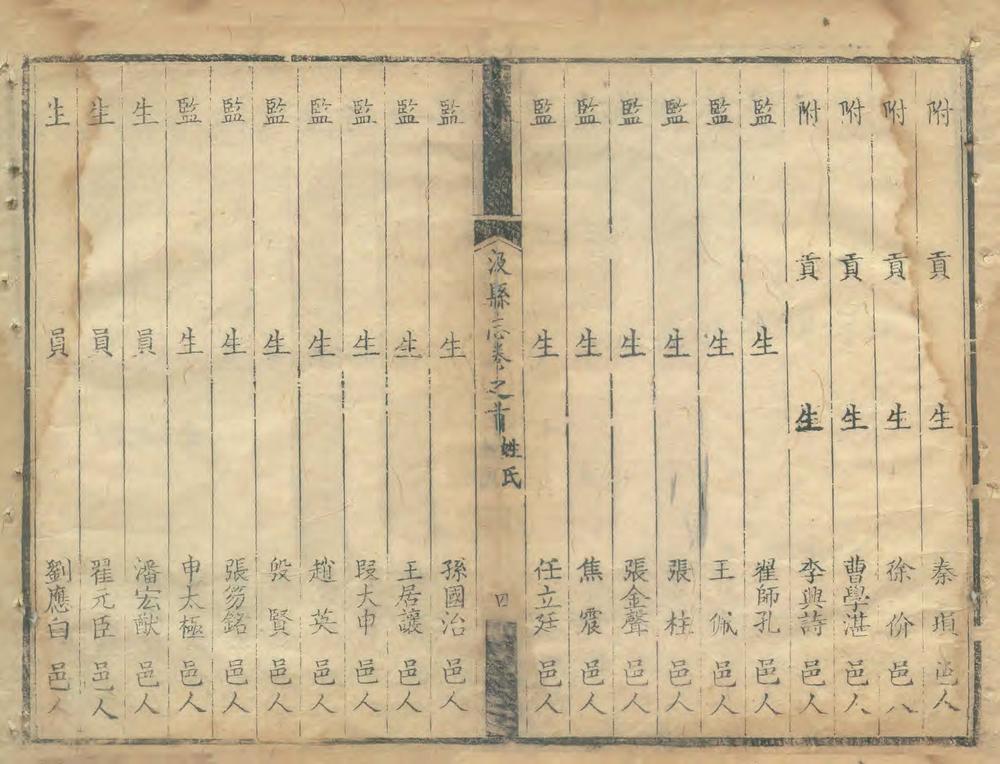 附貢生秦 邑人
附貢生徐份邑人
附貢生曹學湛邑人
附貢生李興詩邑人
監生翟師孔邑人
監生王佩邑人
監生張柱邑人
監生張金聲邑人
監生焦震邑人
監生任立廷邑人
汲縣志卷之首 姓氏 四
監生孫國治邑人
監生王居讓邑人
監生段大申邑人
監生趙英邑人
監生殷賢邑人
監生張 銘邑人
監生申太極邑人
生員潘宏猷邑人
生員翟元臣邑人
生員劉應白邑人